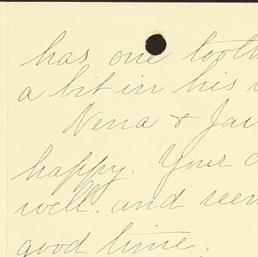 has one tooth
a bit in his
Nena & Jai
happy. Your
well. and seem
good time.